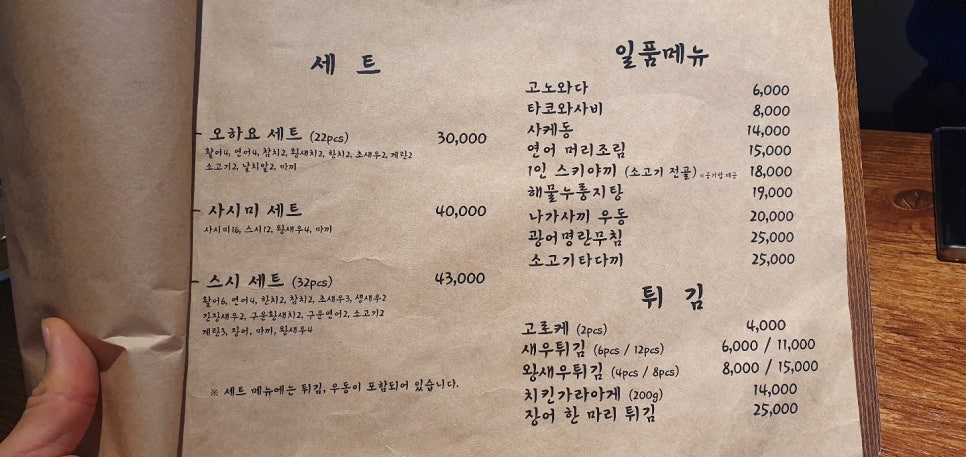 세 트
오하요 세트 (22pcs) 30,000
활어4, 연어4, 참치2, 황새치2, 한치2, 초새우2, 계란2
소고기2, 날치알2, 마끼
사시미 세트 40,000
사시미16, 스시12, 왕새우4, 마끼
스시 세트 (32pcs) 43,000
활어6, 연어4, 한치2, 참치2, 초새우3, 생새우2
간장새우2, 구운황새치2, 구운연어2, 소고기2
계란3, 장어, 마끼, 왕새우4
※ 세트 메뉴에는 튀김, 우동이 포함되어 있습니다.
일품메뉴
고노와다 6,000
타코와사비 8,000
사케동 14,000
연어 머리조림 15,000
1인 스키야끼 (소고기 전골) ※공기밥 제공 18,000
해물누룽지탕 19,000
나가사끼 우동 20,000
광어명란무침 25,000
소고기타다끼 25,000
튀 김
고로케 (2pcs) 4,000
새우튀김 (6pcs / 12pcs) 6,000 / 11,000
왕새우튀김 (4pcs / 8pcs) 8,000 / 15,000
치킨가라아게 (200g) 14,000
장어 한 마리 튀김 25,000